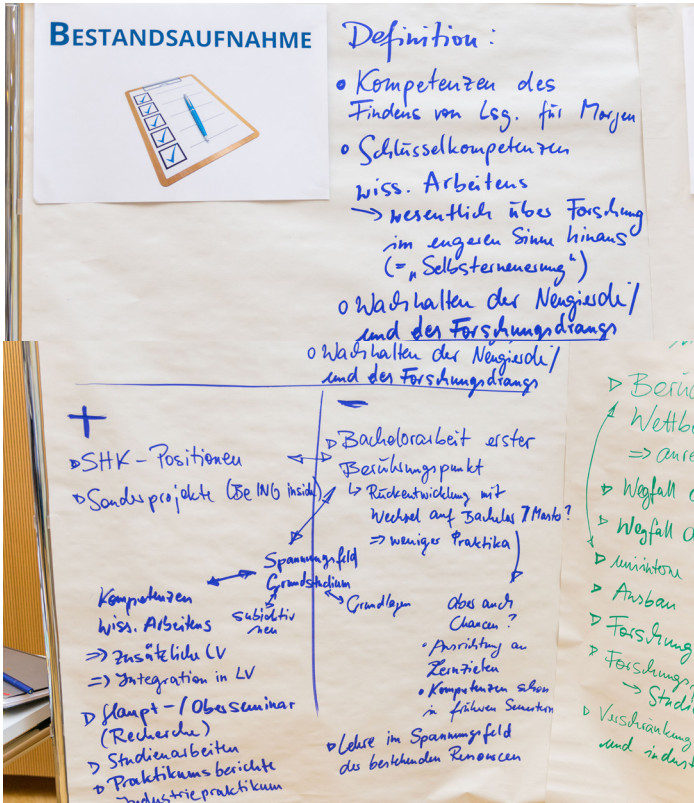 BESTANDSAUFNAHME
Definition:
• Kompetenzen des
Findens von Lsg. für Morgen
• Schlüsselkompetenzen
wiss. Arbeitens
→ wesentlich über Forschung
im engeren Sinne hinaus
(= „Selbsterneuerung“)
o Wachhalten der Neugierde/
und des Forschungsdrangs
o Wachhalten der Neugierde/
und des Forschungsdrangs
+
▷ SHK - Positionen
▷ Sonderprojekte (Be ING inside)
Spannungsfeld
Grundstudium
Kompetenzen
wiss. Arbeitens
subjektiv
neu
⇒ zusätzliche LV
⇒ Integration in LV
▷ Haupt-/Oberseminar
(Recherche)
▷ Studienarbeiten
▷ Praktikumsberichte
Industriepraktikum
−
▷ Bachelorarbeit erster
Berührungspunkt
↳ Rückentwicklung mit
Wechsel auf Bachelor/Master?
⇒ weniger Praktika
Grundlagen
Aber auch
Chancen?
• Ausrichtung an
Lernzielen
• Kompetenzen schon
in früheren Semestern
▷ Lehre im Spannungsfeld
der bestehenden Resourcen
▷ Wegfall
▷ Wegfall
▷ uniinterne
▷ Ausbau
▷ Forschung
▷ Forschungs
▷ Verschränkung
und